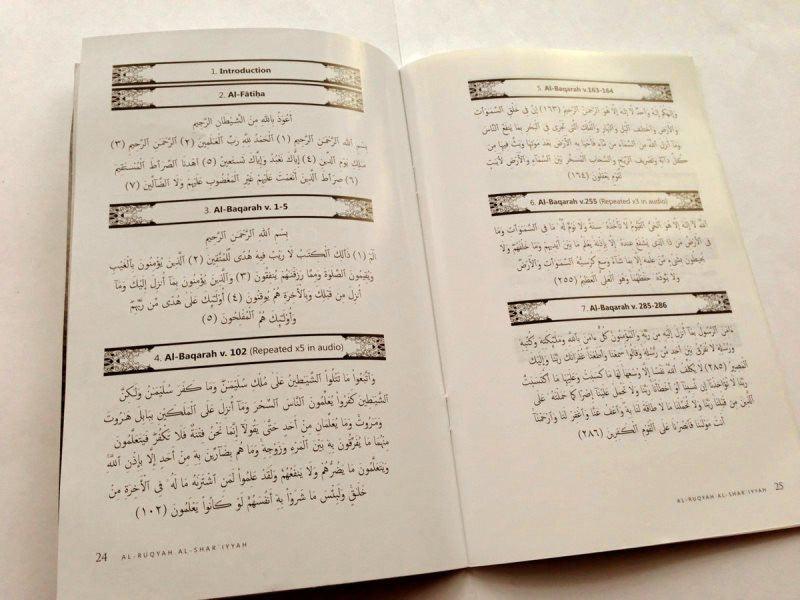 1. Introduction
2. Al-Fātiḥa
أَعُوذُ بِاللهِ مِنَ الشَّيْطَانِ الرَّجِيمِ
بِسْمِ ٱللَّهِ ٱلرَّحْمَٰنِ ٱلرَّحِيمِ (١) ٱلْحَمْدُ لِلَّهِ رَبِّ ٱلْعَٰلَمِينَ (٢) ٱلرَّحْمَٰنِ ٱلرَّحِيمِ (٣)
مَٰلِكِ يَوْمِ ٱلدِّينِ (٤) إِيَّاكَ نَعْبُدُ وَإِيَّاكَ نَسْتَعِينُ (٥) ٱهْدِنَا ٱلصِّرَٰطَ ٱلْمُسْتَقِيمَ
(٦) صِرَٰطَ ٱلَّذِينَ أَنْعَمْتَ عَلَيْهِمْ غَيْرِ ٱلْمَغْضُوبِ عَلَيْهِمْ وَلَا ٱلضَّآلِّينَ (٧)
3. Al-Baqarah v. 1-5
بِسْمِ ٱللَّهِ ٱلرَّحْمَٰنِ ٱلرَّحِيمِ
الٓمٓ (١) ذَٰلِكَ ٱلْكِتَٰبُ لَا رَيْبَ فِيهِ هُدًى لِّلْمُتَّقِينَ (٢) ٱلَّذِينَ يُؤْمِنُونَ بِٱلْغَيْبِ
وَيُقِيمُونَ ٱلصَّلَوٰةَ وَمِمَّا رَزَقْنَٰهُمْ يُنفِقُونَ (٣) وَٱلَّذِينَ يُؤْمِنُونَ بِمَآ أُنزِلَ إِلَيْكَ وَمَآ
أُنزِلَ مِن قَبْلِكَ وَبِٱلْأَخِرَةِ هُمْ يُوقِنُونَ (٤) أُو۟لَٰٓئِكَ عَلَىٰ هُدًى مِّن رَّبِّهِمْ
وَأُو۟لَٰٓئِكَ هُمُ ٱلْمُفْلِحُونَ (٥)
4. Al-Baqarah v. 102 (Repeated x5 in audio)
وَٱتَّبَعُوا۟ مَا تَتْلُوا۟ ٱلشَّيَٰطِينُ عَلَىٰ مُلْكِ سُلَيْمَٰنَ وَمَا كَفَرَ سُلَيْمَٰنُ وَلَٰكِنَّ
ٱلشَّيَٰطِينَ كَفَرُوا۟ يُعَلِّمُونَ ٱلنَّاسَ ٱلسِّحْرَ وَمَآ أُنزِلَ عَلَى ٱلْمَلَكَيْنِ بِبَابِلَ هَٰرُوتَ
وَمَٰرُوتَ وَمَا يُعَلِّمَانِ مِنْ أَحَدٍ حَتَّىٰ يَقُولَآ إِنَّمَا نَحْنُ فِتْنَةٌ فَلَا تَكْفُرْ فَيَتَعَلَّمُونَ
مِنْهُمَا مَا يُفَرِّقُونَ بِهِۦ بَيْنَ ٱلْمَرْءِ وَزَوْجِهِۦ وَمَا هُم بِضَآرِّينَ بِهِۦ مِنْ أَحَدٍ إِلَّا بِإِذْنِ ٱللَّهِ
وَيَتَعَلَّمُونَ مَا يَضُرُّهُمْ وَلَا يَنفَعُهُمْ وَلَقَدْ عَلِمُوا۟ لَمَنِ ٱشْتَرَىٰهُ مَا لَهُۥ فِى ٱلْأَخِرَةِ مِنْ
خَلَٰقٍ وَلَبِئْسَ مَا شَرَوْا۟ بِهِۦٓ أَنفُسَهُمْ لَوْ كَانُوا۟ يَعْلَمُونَ (١٠٢)
24 AL-RUQYAH AL-SHAR`IYYAH
5. Al-Baqarah v.163-164
وَإِلَٰهُكُمْ إِلَٰهٌ وَٰحِدٌ لَّآ إِلَٰهَ إِلَّا هُوَ ٱلرَّحْمَٰنُ ٱلرَّحِيمُ (١٦٣) إِنَّ فِى خَلْقِ ٱلسَّمَٰوَٰتِ
وَٱلْأَرْضِ وَٱخْتِلَٰفِ ٱلَّيْلِ وَٱلنَّهَارِ وَٱلْفُلْكِ ٱلَّتِى تَجْرِى فِى ٱلْبَحْرِ بِمَا يَنفَعُ ٱلنَّاسَ
وَمَآ أَنزَلَ ٱللَّهُ مِنَ ٱلسَّمَآءِ مِن مَّآءٍ فَأَحْيَا بِهِ ٱلْأَرْضَ بَعْدَ مَوْتِهَا وَبَثَّ فِيهَا مِن
كُلِّ دَآبَّةٍ وَتَصْرِيفِ ٱلرِّيَٰحِ وَٱلسَّحَابِ ٱلْمُسَخَّرِ بَيْنَ ٱلسَّمَآءِ وَٱلْأَرْضِ لَءَايَٰتٍ
لِّقَوْمٍ يَعْقِلُونَ (١٦٤)
6. Al-Baqarah v.255 (Repeated x3 in audio)
ٱللَّهُ لَآ إِلَٰهَ إِلَّا هُوَ ٱلْحَىُّ ٱلْقَيُّومُ لَا تَأْخُذُهُۥ سِنَةٌ وَلَا نَوْمٌ لَّهُۥ مَا فِى ٱلسَّمَٰوَٰتِ وَمَا
فِى ٱلْأَرْضِ مَن ذَا ٱلَّذِى يَشْفَعُ عِندَهُۥٓ إِلَّا بِإِذْنِهِۦ يَعْلَمُ مَا بَيْنَ أَيْدِيهِمْ وَمَا خَلْفَهُمْ وَلَا
يُحِيطُونَ بِشَىْءٍ مِّنْ عِلْمِهِۦٓ إِلَّا بِمَا شَآءَ وَسِعَ كُرْسِيُّهُ ٱلسَّمَٰوَٰتِ وَٱلْأَرْضَ
وَلَا يَـُٔودُهُۥ حِفْظُهُمَا وَهُوَ ٱلْعَلِىُّ ٱلْعَظِيمُ (٢٥٥)
7. Al-Baqarah v. 285-286
ءَامَنَ ٱلرَّسُولُ بِمَآ أُنزِلَ إِلَيْهِ مِن رَّبِّهِۦ وَٱلْمُؤْمِنُونَ كُلٌّ ءَامَنَ بِٱللَّهِ وَمَلَٰٓئِكَتِهِۦ وَكُتُبِهِۦ
وَرُسُلِهِۦ لَا نُفَرِّقُ بَيْنَ أَحَدٍ مِّن رُّسُلِهِۦ وَقَالُوا۟ سَمِعْنَا وَأَطَعْنَا غُفْرَانَكَ رَبَّنَا وَإِلَيْكَ
ٱلْمَصِيرُ (٢٨٥) لَا يُكَلِّفُ ٱللَّهُ نَفْسًا إِلَّا وُسْعَهَا لَهَا مَا كَسَبَتْ وَعَلَيْهَا مَا ٱكْتَسَبَتْ
رَبَّنَا لَا تُؤَاخِذْنَآ إِن نَّسِينَآ أَوْ أَخْطَأْنَا رَبَّنَا وَلَا تَحْمِلْ عَلَيْنَآ إِصْرًا كَمَا حَمَلْتَهُۥ عَلَى
ٱلَّذِينَ مِن قَبْلِنَا رَبَّنَا وَلَا تُحَمِّلْنَا مَا لَا طَاقَةَ لَنَا بِهِۦ وَٱعْفُ عَنَّا وَٱغْفِرْ لَنَا وَٱرْحَمْنَآ
أَنتَ مَوْلَىٰنَا فَٱنصُرْنَا عَلَى ٱلْقَوْمِ ٱلْكَٰفِرِينَ (٢٨٦)
AL-RUQYAH AL-SHAR`IYYAH 25